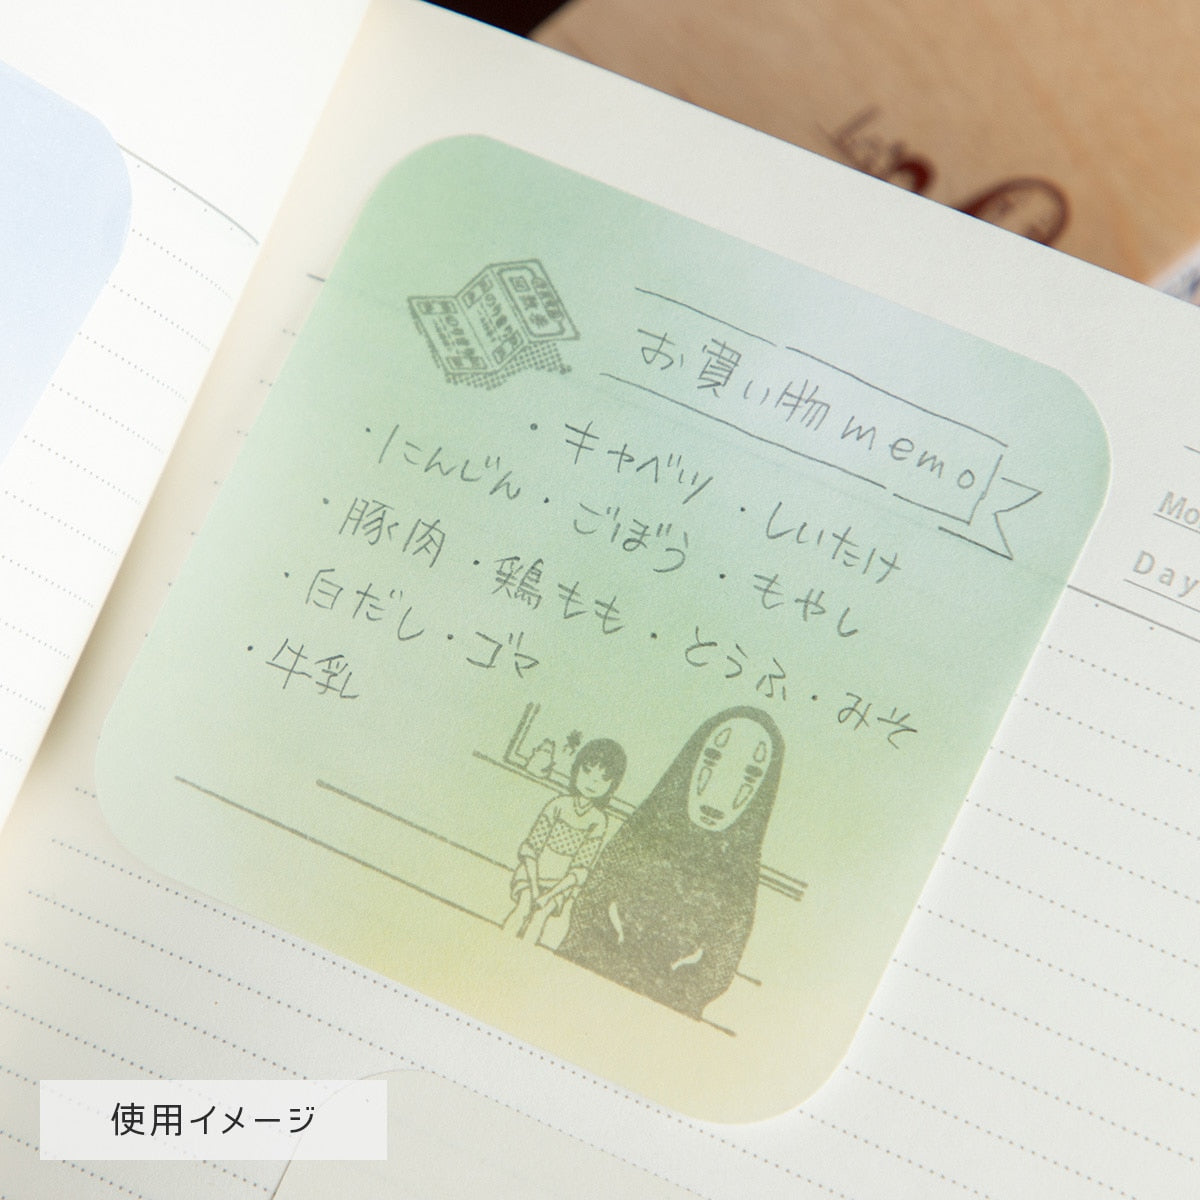 お買い物memo
・キャベツ ・しいたけ
・にんじん ・ごぼう ・もやし
・豚肉 ・鶏もも ・とうふ ・みそ
・白だし ・ゴマ
・牛乳
回数券
Mo
Day
使用イメージ